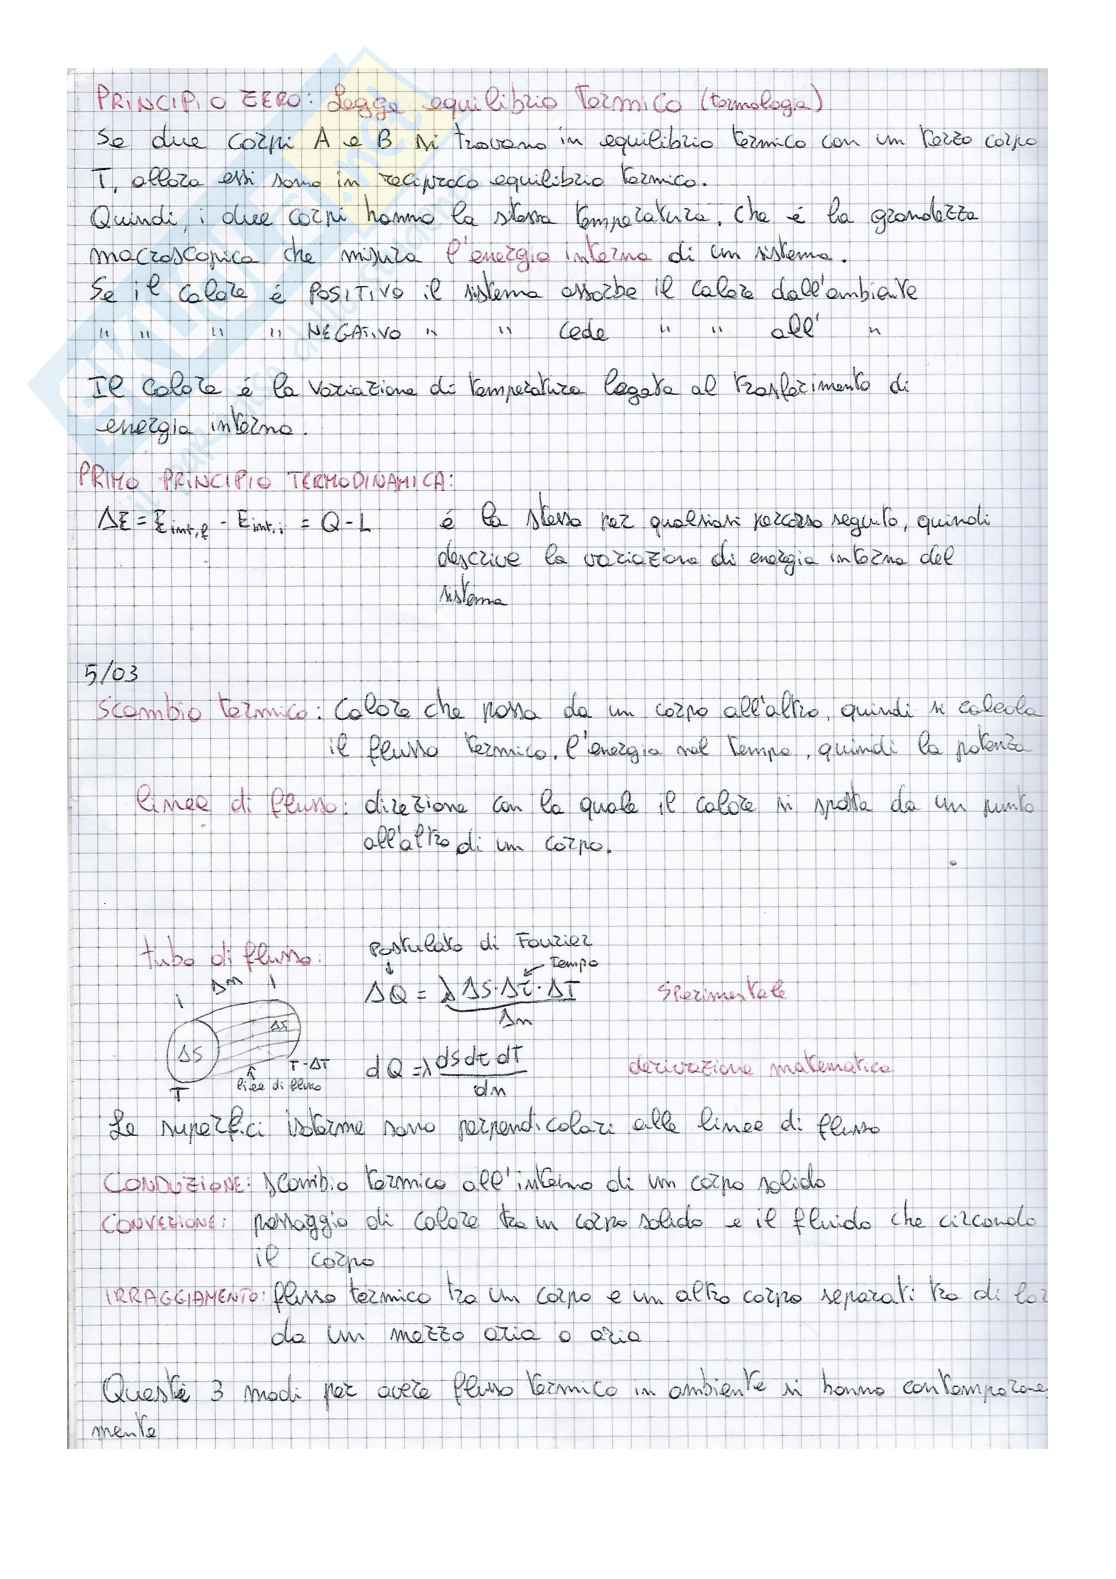 PRINCIPIO ZERO: Legge equilibrio termico (termologia)
Se due corpi A e B si trovano in equilibrio termico con un terzo corpo
T, allora essi sono in reciproco equilibrio termico.
Quindi, i due corpi hanno la stessa temperatura, che è la grandezza
macroscopica che misura l'energia interna di un sistema.
Se il calore è POSITIVO il sistema assorbe il calore dall'ambiente
" " " " NEGATIVO " " cede " " all' "
Il calore è la variazione di temperatura legata al trasferimento di
energia interna.
PRIMO PRINCIPIO TERMODINAMICA:
ΔE = Eint,f - Eint,i = Q - L è la stessa per qualsiasi percorso seguito, quindi
descrive la variazione di energia interna del
sistema
5/03
Scambio termico: Calore che passa da un corpo all'altro, quindi si calcola
il flusso termico, l'energia nel tempo, quindi la potenza
linee di flusso: direzione con la quale il calore si sposta da un punto
all'altro di un corpo.
tubo di flusso: Postulato di Fourier
tempo
Δn
ΔQ = λ ΔS·Δτ·ΔT / Δn Sperimentale
ΔS
ΔS
T-ΔT
linee di flusso
T
dQ = λ dS dτ dT / dn derivazione matematica
Le superfici isoterme sono perpendicolari alle linee di flusso
CONDUZIONE: scambio termico all'interno di un corpo solido
CONVEZIONE: passaggio di calore tra un corpo solido e il fluido che circonda
il corpo
IRRAGGIAMENTO: flusso termico tra un corpo e un altro corpo separati tra di lor
da un mezzo aria o aria
Queste 3 modi per avere flusso termico in ambiente si hanno contemporanea
mente